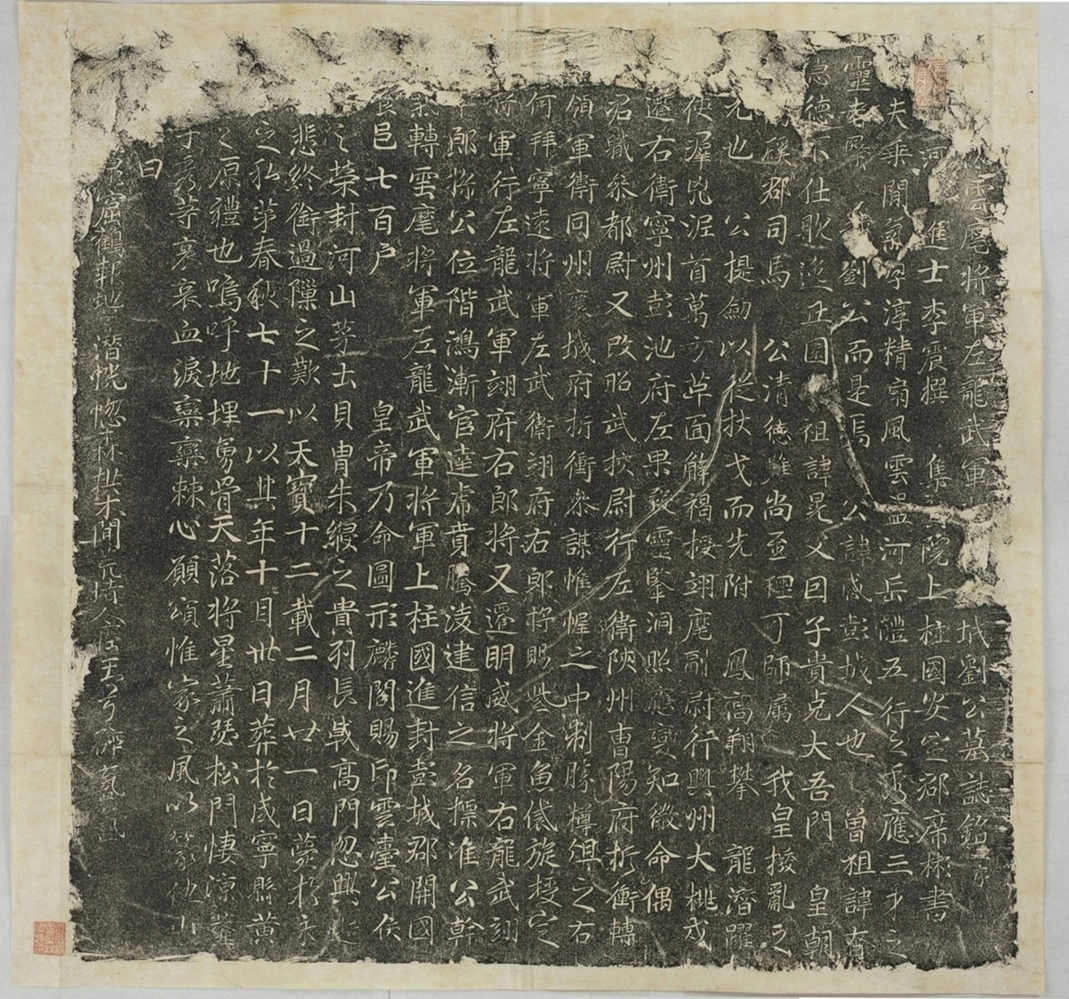 雲麾將軍左龍武軍 城劉公墓誌銘
河 進士李震撰 集 院上柱國安定郡席彬書
夫乘間氣字淳精扇風雲盪河岳體五行之秀應三才之
靈者 劉公而是焉 公諱感彭城人也 曾祖諱
德不仕耿迹丘園 祖諱晃 父曰子貴克大吾門 皇朝
溪郡司馬 公清德惟尚 理可師屬 我皇撥亂之
元也 公提劒以從杖戈而先附 鳳高翔攀 龍潛躍
使渥洽首萬方革面解褐授翊麾副尉行興州大桃戍
遷右衛寧州彭池府左果毅靈鑒洞照應變知微命偶
沼職叅都尉又改昭武挍尉行左衛陝州曹陽府折衝轉
領軍衛同州襄城府折衝叅謀帷幄之中制勝樽俎之右
何拜寧遠將軍左武衛翊府右郎將賜紫金魚袋旋授定
將軍行左龍武軍翊府右郎將又遷明威將軍右龍武翊
郎將公位階鴻漸官達虎賁騰淩建信之名標准公幹
氣轉雲麾將軍左龍武軍將軍上柱國進封彭城郡開國
食邑七百戶 皇帝乃命圖形麟閣賜印雲臺公侯
之榮封河山茅土貝胄朱綬之貴羽長戟高門忽興
悲終銜過隟之歎以天寶十二載二月廿一日薨於
之私苐春秋七十一以其年十月卅日葬於咸寧縣黃
之原禮也嗚呼地埋勇骨天落將星蕭瑟松門悽凉
丁彥等哀哀血淚欒欒棘心願頌惟家之風以
曰
窟鶴 地 潛恍惚 間 玉弓